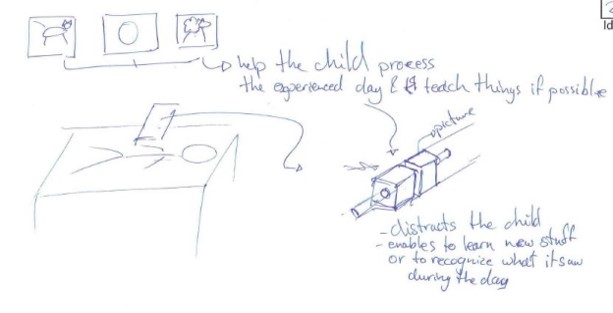 Id
help the child process
the experienced day & teach things if possible
picture
- distracts the child
- enables to learn new stuff
or to recognize what it saw
during the day